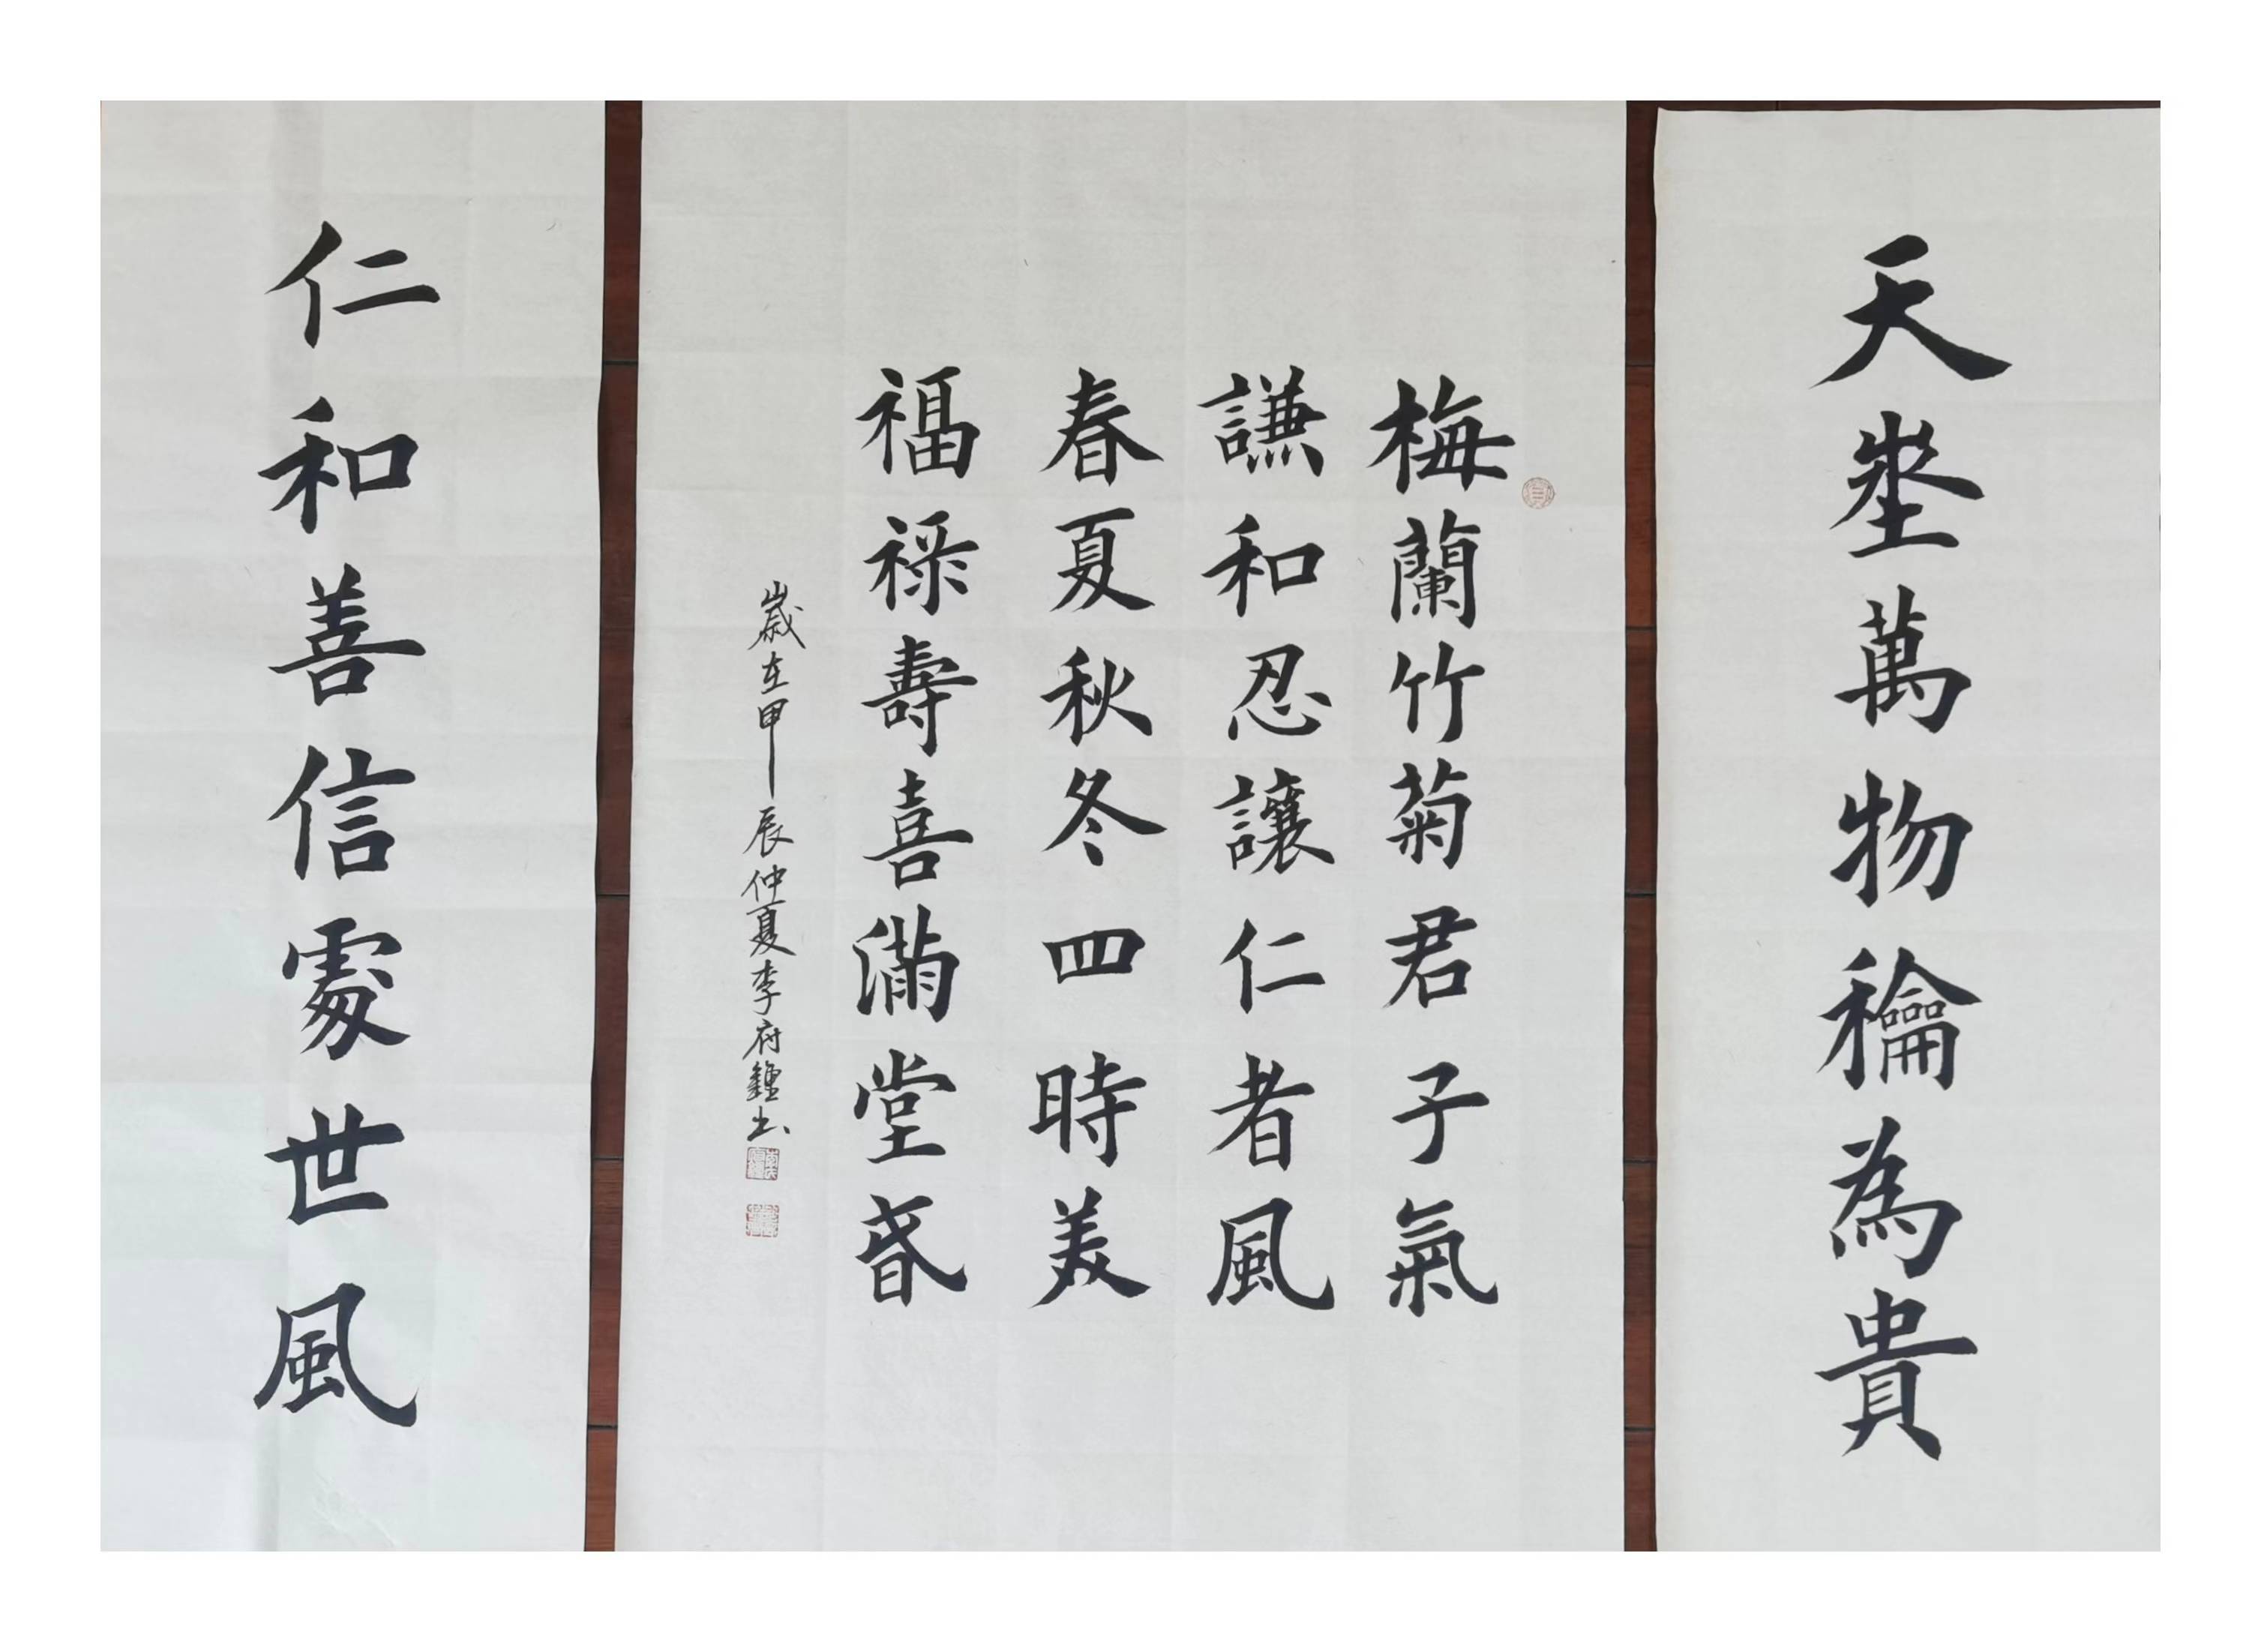 天埊萬物龢為貴
梅蘭竹菊君子氣
謙和忍讓仁者風
春夏秋冬四時美
福祿壽喜滿堂旾
歲在甲辰仲夏李府鐘书
仁和善信處世風